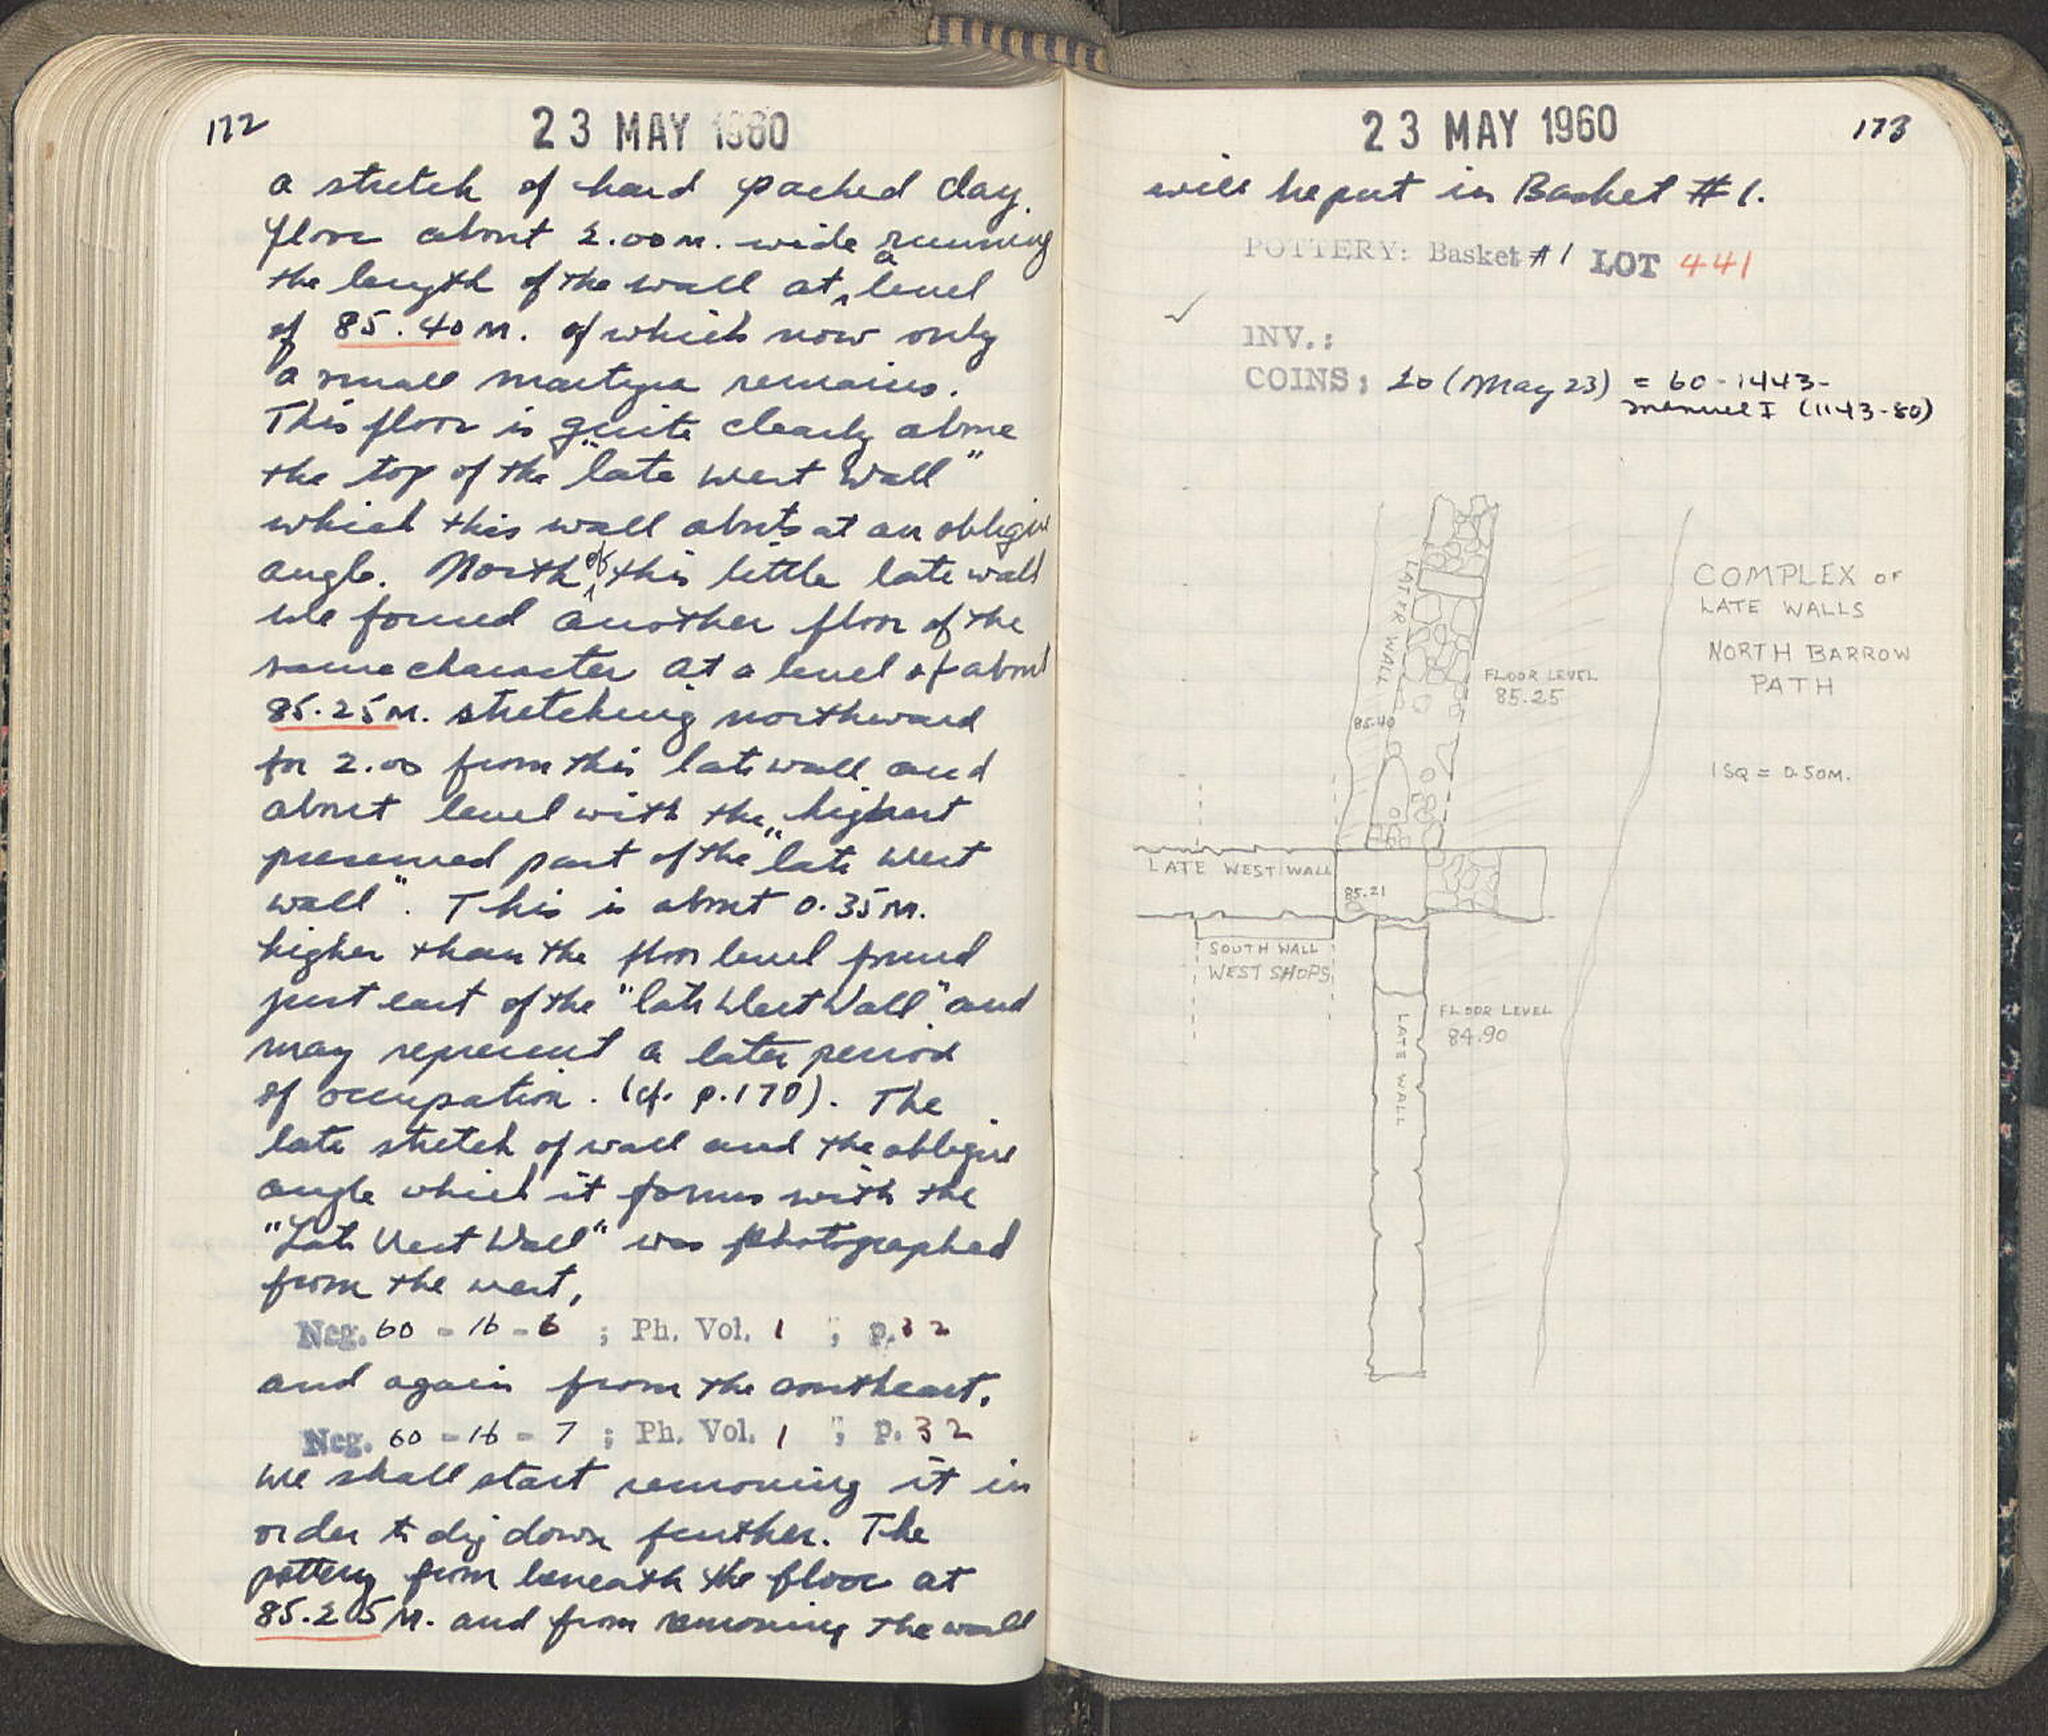 172
23 MAY 1960
a stretch of hard packed clay
floor about 2.00 m. wide running
the length of the wall at a level
of 85.40 m. of which now only
a small martyra remains.
This floor is quite clearly above
the top of the "late West Wall"
which this wall abuts at an oblique
angle. North of this little late wall
we found another floor of the
same character at a level of about
85.25 m. stretching northward
for 2.00 from this late wall and
about level with the highest
preserved part of the "late West
Wall". This is about 0.35 m.
higher than the floor level found
just east of the "late West Wall" and
may represent a later period
of occupation. (cf. p. 170). The
late stretch of wall and the oblique
angle which it forms with the
"Late West Wall" was photographed
from the west,
Neg. 60 - 16 - 6 ; Ph. Vol. 1 ; p. 32
and again from the southeast.
Neg. 60 - 16 - 7 ; Ph. Vol. 1 ; p. 32
We shall start removing it in
order to dig down further. The
pottery from beneath the floor at
85.25 M. and from removing the wall
23 MAY 1960
173
will be put in Basket #1.
POTTERY: Basket #1 LOT 441
INV.:
COINS; 20 (May 23) = 60-1443-
Manuel I (1143-80)
LATER WALL
FLOOR LEVEL
85.25
85.40
COMPLEX OF
LATE WALLS
NORTH BARROW
PATH
1 SQ = 0.50M.
LATE WEST WALL
85.21
SOUTH WALL
WEST SHOPS
FLOOR LEVEL
84.90
LATE WALL